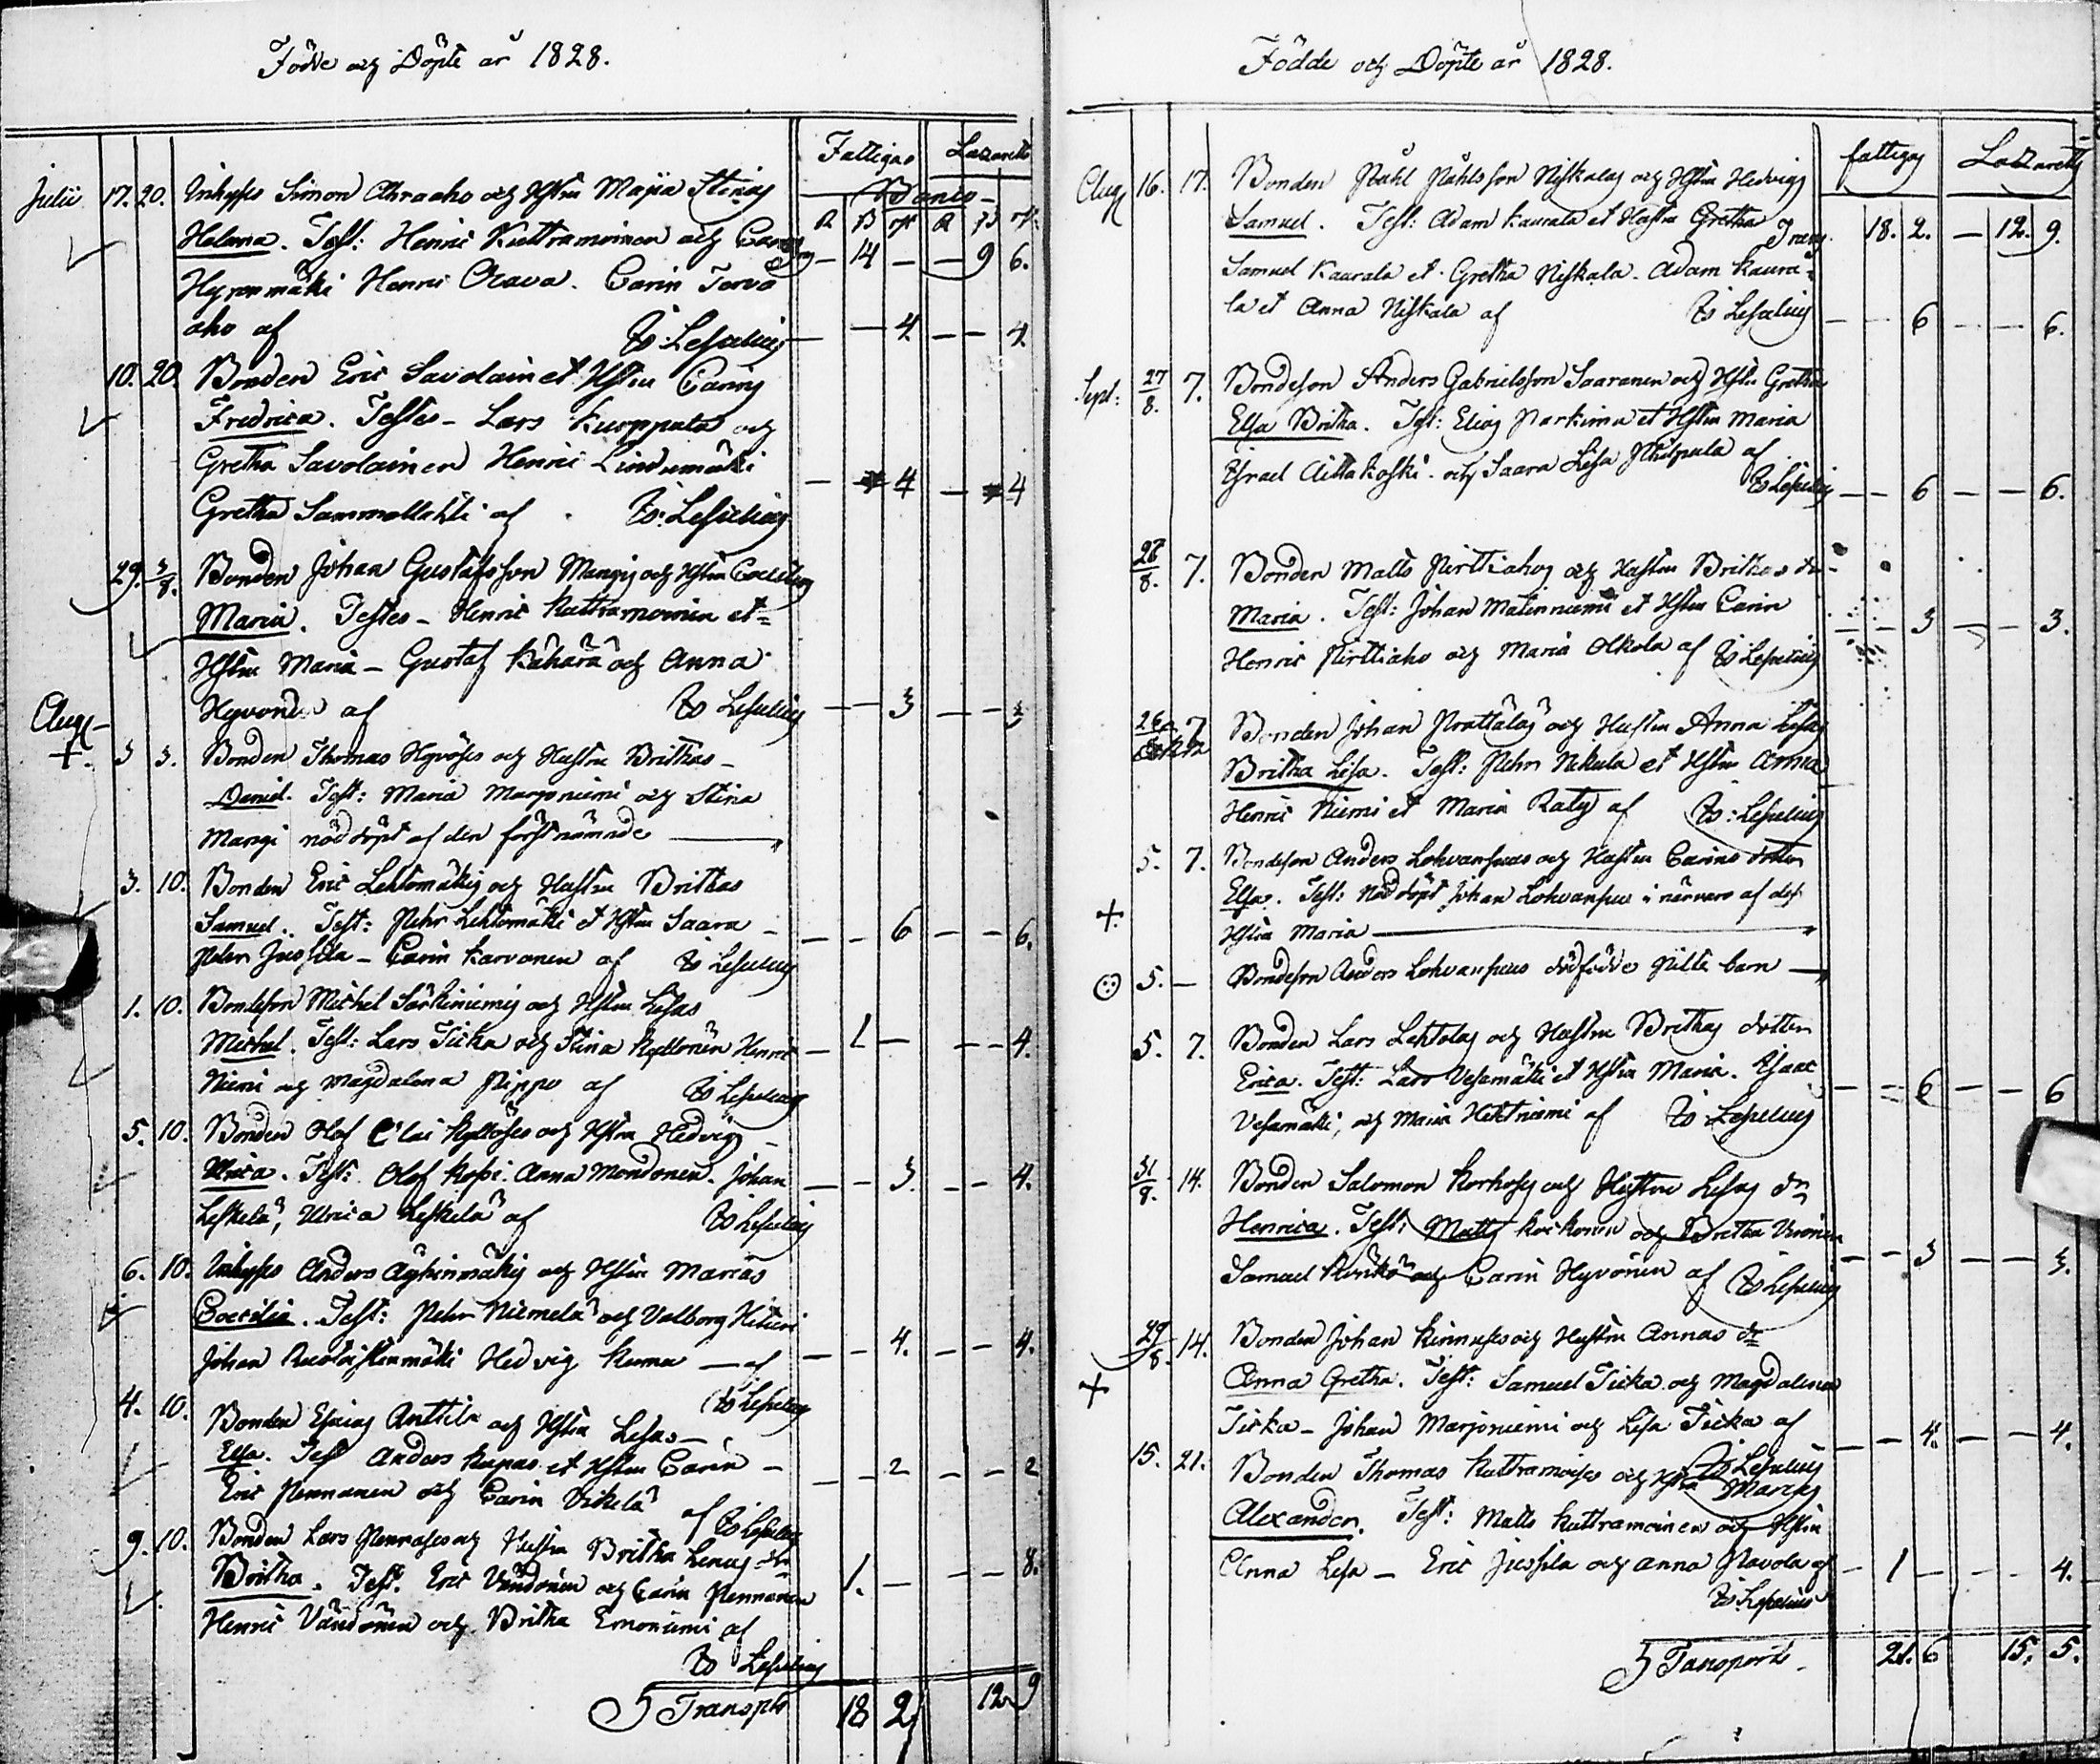 Födde och Döpte år 1828.
Fattigas Lazaretts
Banco
R ß rst R ß rst
Julii 17. 20. Inhyses Simon Ahoaho och Hstru Majia Stinas
Helena. Test: Henric Kuttramoinen och
Hyrynmäki Henric Orava. Carin Torva
14 — — 9 6.
aho af B: Leselius — 4. — — 4
10. 20. Bonden Eric Savolain et Hstru Carins
Fredrica. Testes - Lars Kurppata och
Gretha Savolainen Henric Lindumäki
— 4 — 4
Gretha Sammallahti af B: Leselius
29. 3/8. Bonden Johan Gustafsson Mangis och Hstru Caecilias
Maria. Testes - Henric Kuttramoinen et
Hstru Maria - Gustaf Kähärä och Anna
Hyvonen af B Leselius — — 3 — — 3
Aug
+. 3 3. Bonden Thomas Hyvöses och Hustru Brithas
Daniel. Test: Maria Marjoniemi och Stina
Mangi nöddöpt af den förstnämnde
3. 10. Bonden Eric Lehtomäkis och Hustru Brithas
Samuel. Test: Pehr Lehtomäki et Hstru Saara
Pehr Jussila - Carin Karvonen af B Leselius — — 6 — — 6.
1. 10. Bondeson Michel Särkiniemis och Hstru Lisas
Michel. Test: Lars Ticka och Stina Kyllönen Henric — 1 — — — 4.
Niemi och Magdalena Pippo af B Leselius
5. 10. Bonden Olof Kyllöses och Hstru Hedvigs
Ulrica. Test: Olof Anna Mondonen. Johan — — 3. — — 4.
Leskelä, Ulrica Leskelä af B Leselius
6. 10. Inhyses Anders Äyhinmäkis och Hstru Marias
Caecilia. Test: Pehr Niemelä och Valborg
Johan Hedvig Kemu — af — — 4. — — 4.
B Leselius
4. 10. Bonden Esaias Anttila och Hstru Lisas
Elsa. Test Anders Kupas et Hstru Carin — — 2 — — 2
Eric Pennanen och Carin Vikelä af B Leselius
9. 10. Bonden Lars Pennases och Hustru Britha Lenas dr
Britha. Test. Eric Väisänen och Carin Pennanen 1. — — — 8.
Henric Väisänen och Britha Emoniemi af
B Leselius
Transport 18 2 12 9
Födde och Döpte år 1828.
fattigas Lazaretts
Aug 16. 17. Bonden Påhl Påhlsson Niskalas och Hstru Hedvigs
Samuel. Test: Adam Kaurala et Hustru Gretha Trans. 18. 2. — 12. 9.
Samuel Kaurala et Gretha Niskala. Adam Kaura=
la et Anna Niskala af B Leselius — — 6 — — 6.
Sept: 27/8. 7. Bondeson Anders Gabrielsson Saaranen och Hstru Gretha
Elsa Britha. Test: Elias Parkima et Hstru Maria
Esrael Aittakoski och Saara Lisa Philpula af
B Leselius — — 6 — — 6.
28/8. 7. Bonden Matts Pirttiahos och Hustru Brithas dr
Maria. Test: Johan Matinniemi et Hstru Carin
— — 3 — — 3.
Henric Pirttiaho och Maria Alkola af B Leselius
26/8 7 Bonden Johan Prättäläs och Hustru Anna Lisas
Britha Lisa. Test: Pehr Nikula et Hstru Anna
Henric Niemi et Maria Raty af B: Leselius
5. 7. Bondeson Anders Lohvansuus och Hustru Carins dotter
+ Elsa. Test: Nöddöpt Johan Lohvansuu i närvaro af dess
Hstru Maria
5. — Bondeson Anders Lohvansuus dödfödde pilte barn
5. 7. Bonden Lars Lehtolas och Hustru Brithas dotter
Erica. Test: Lars Vesamäki et Hstru Maria. Isaac — — 6 — — 6
Vesamäki, och Maria Hektniemi af B Leselius
31/8. 14. Bonden Salomon Korhoses och Hustru Lisas dr
Henrica. Test: Matts Korhonen och Britha
Samuel och Carin Hyvönen af B Leselius — — 3 — — 3.
29/8. 14. Bonden Johan Kinnuses och Hustru Annas dr
+ Anna Gretha. Test: Samuel Ticka och Magdalena
Ticka - Johan Marjoniemi och Lisa Ticka af — — 4. — — 4.
B Leselius
15. 21. Bonden Thomas Kuttramoises och Hstru Marias
Alexander. Test: Matts Kuttramoinen och Hstru
Anna Lisa — Eric Jussila och Anna Pavola af — 1 — — — 4.
B Leselius
Tansport 21. 6 15. 5.